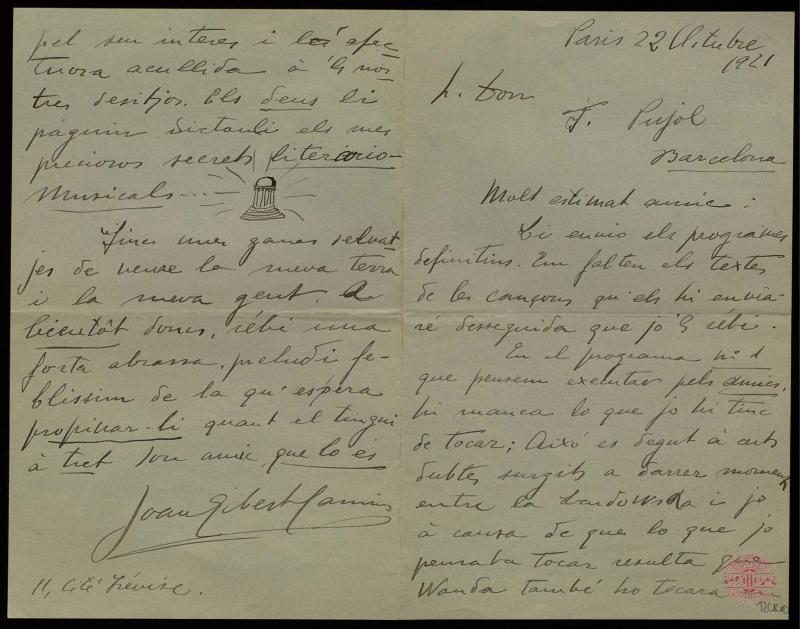 Paris 22 Octubre
1921
Sr. Don
F. Pujol
Barcelona
Molt estimat amic:
Li envio els programes
definitius. Em falten els textes
de les cançons qu'els hi envia-
ré desseguida que jo 'ls rébi.
En el programa nº 1
que pensem executar pels amics,
hi manca lo que jo hi tinc
de tocar; Aixó es degut à certs
dubtes surgits a darrer moment
entre la Landowska i jo
à causa de que lo que jo
pensaba tocar resulta que
Wanda també ho tocara
pel seu interes i la afec
tuosa acullida à 'ls nos
tres desitjos. Els deus li
páguin dictanli els mes
preciosos secrets literario-
musicals....
Tinc unes ganes selvat
jes de veure la meva terra
i la meva gent. A
bientôt doncs, rébi una
forta abrassa, preludi fe-
blissim de la qu'espera
propinar-li quant el tingui
à tret son amic, que lo és
Joan Gibert Camins
11, Cité Trévise.